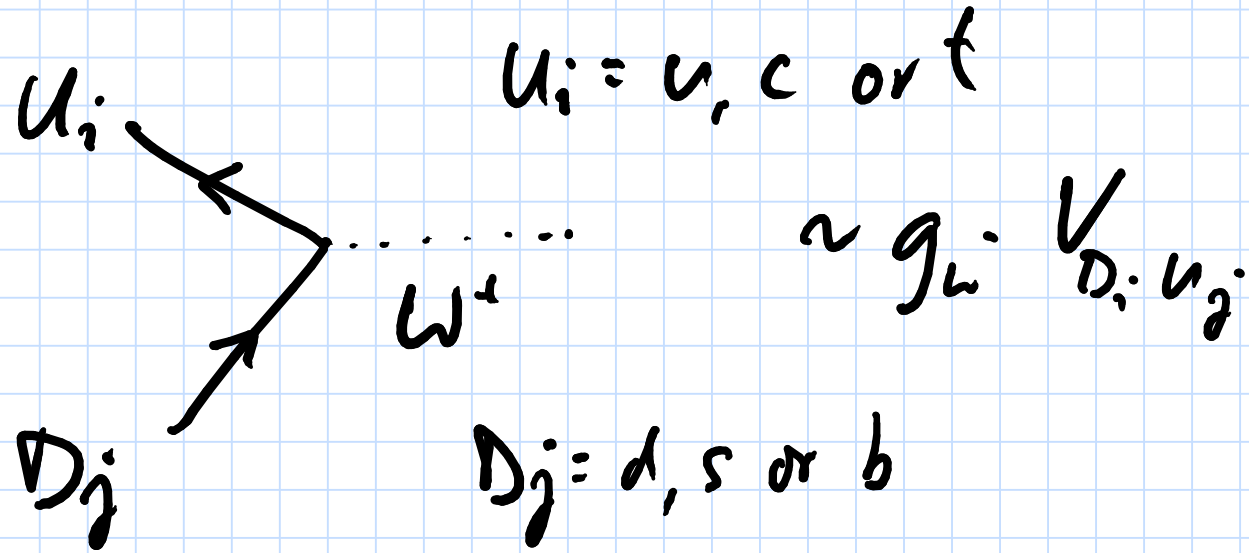 U_i
U_i = u, c or t
W^+
~ g_w · V_{D_i u_j}
D_j
D_j = d, s or b